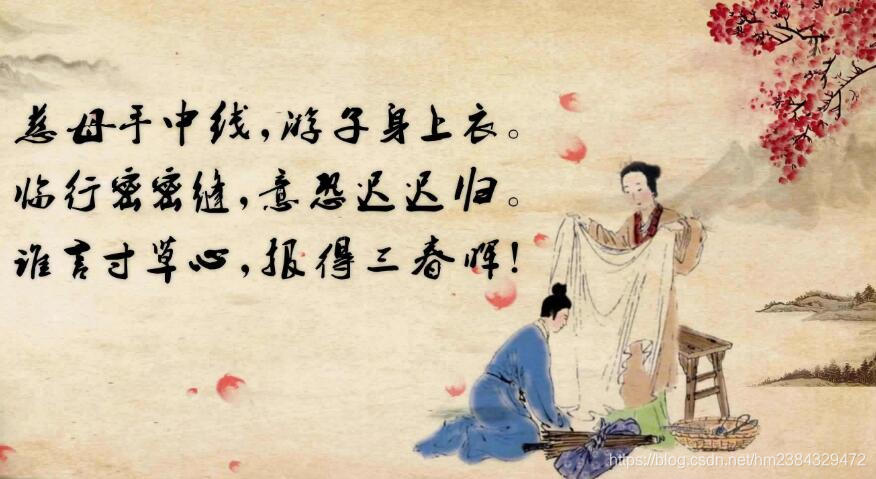 慈母手中线,游子身上衣。
临行密密缝,意恐迟迟归。
谁言寸草心,报得三春晖!
https://blog.csdn.net/hm2384329472